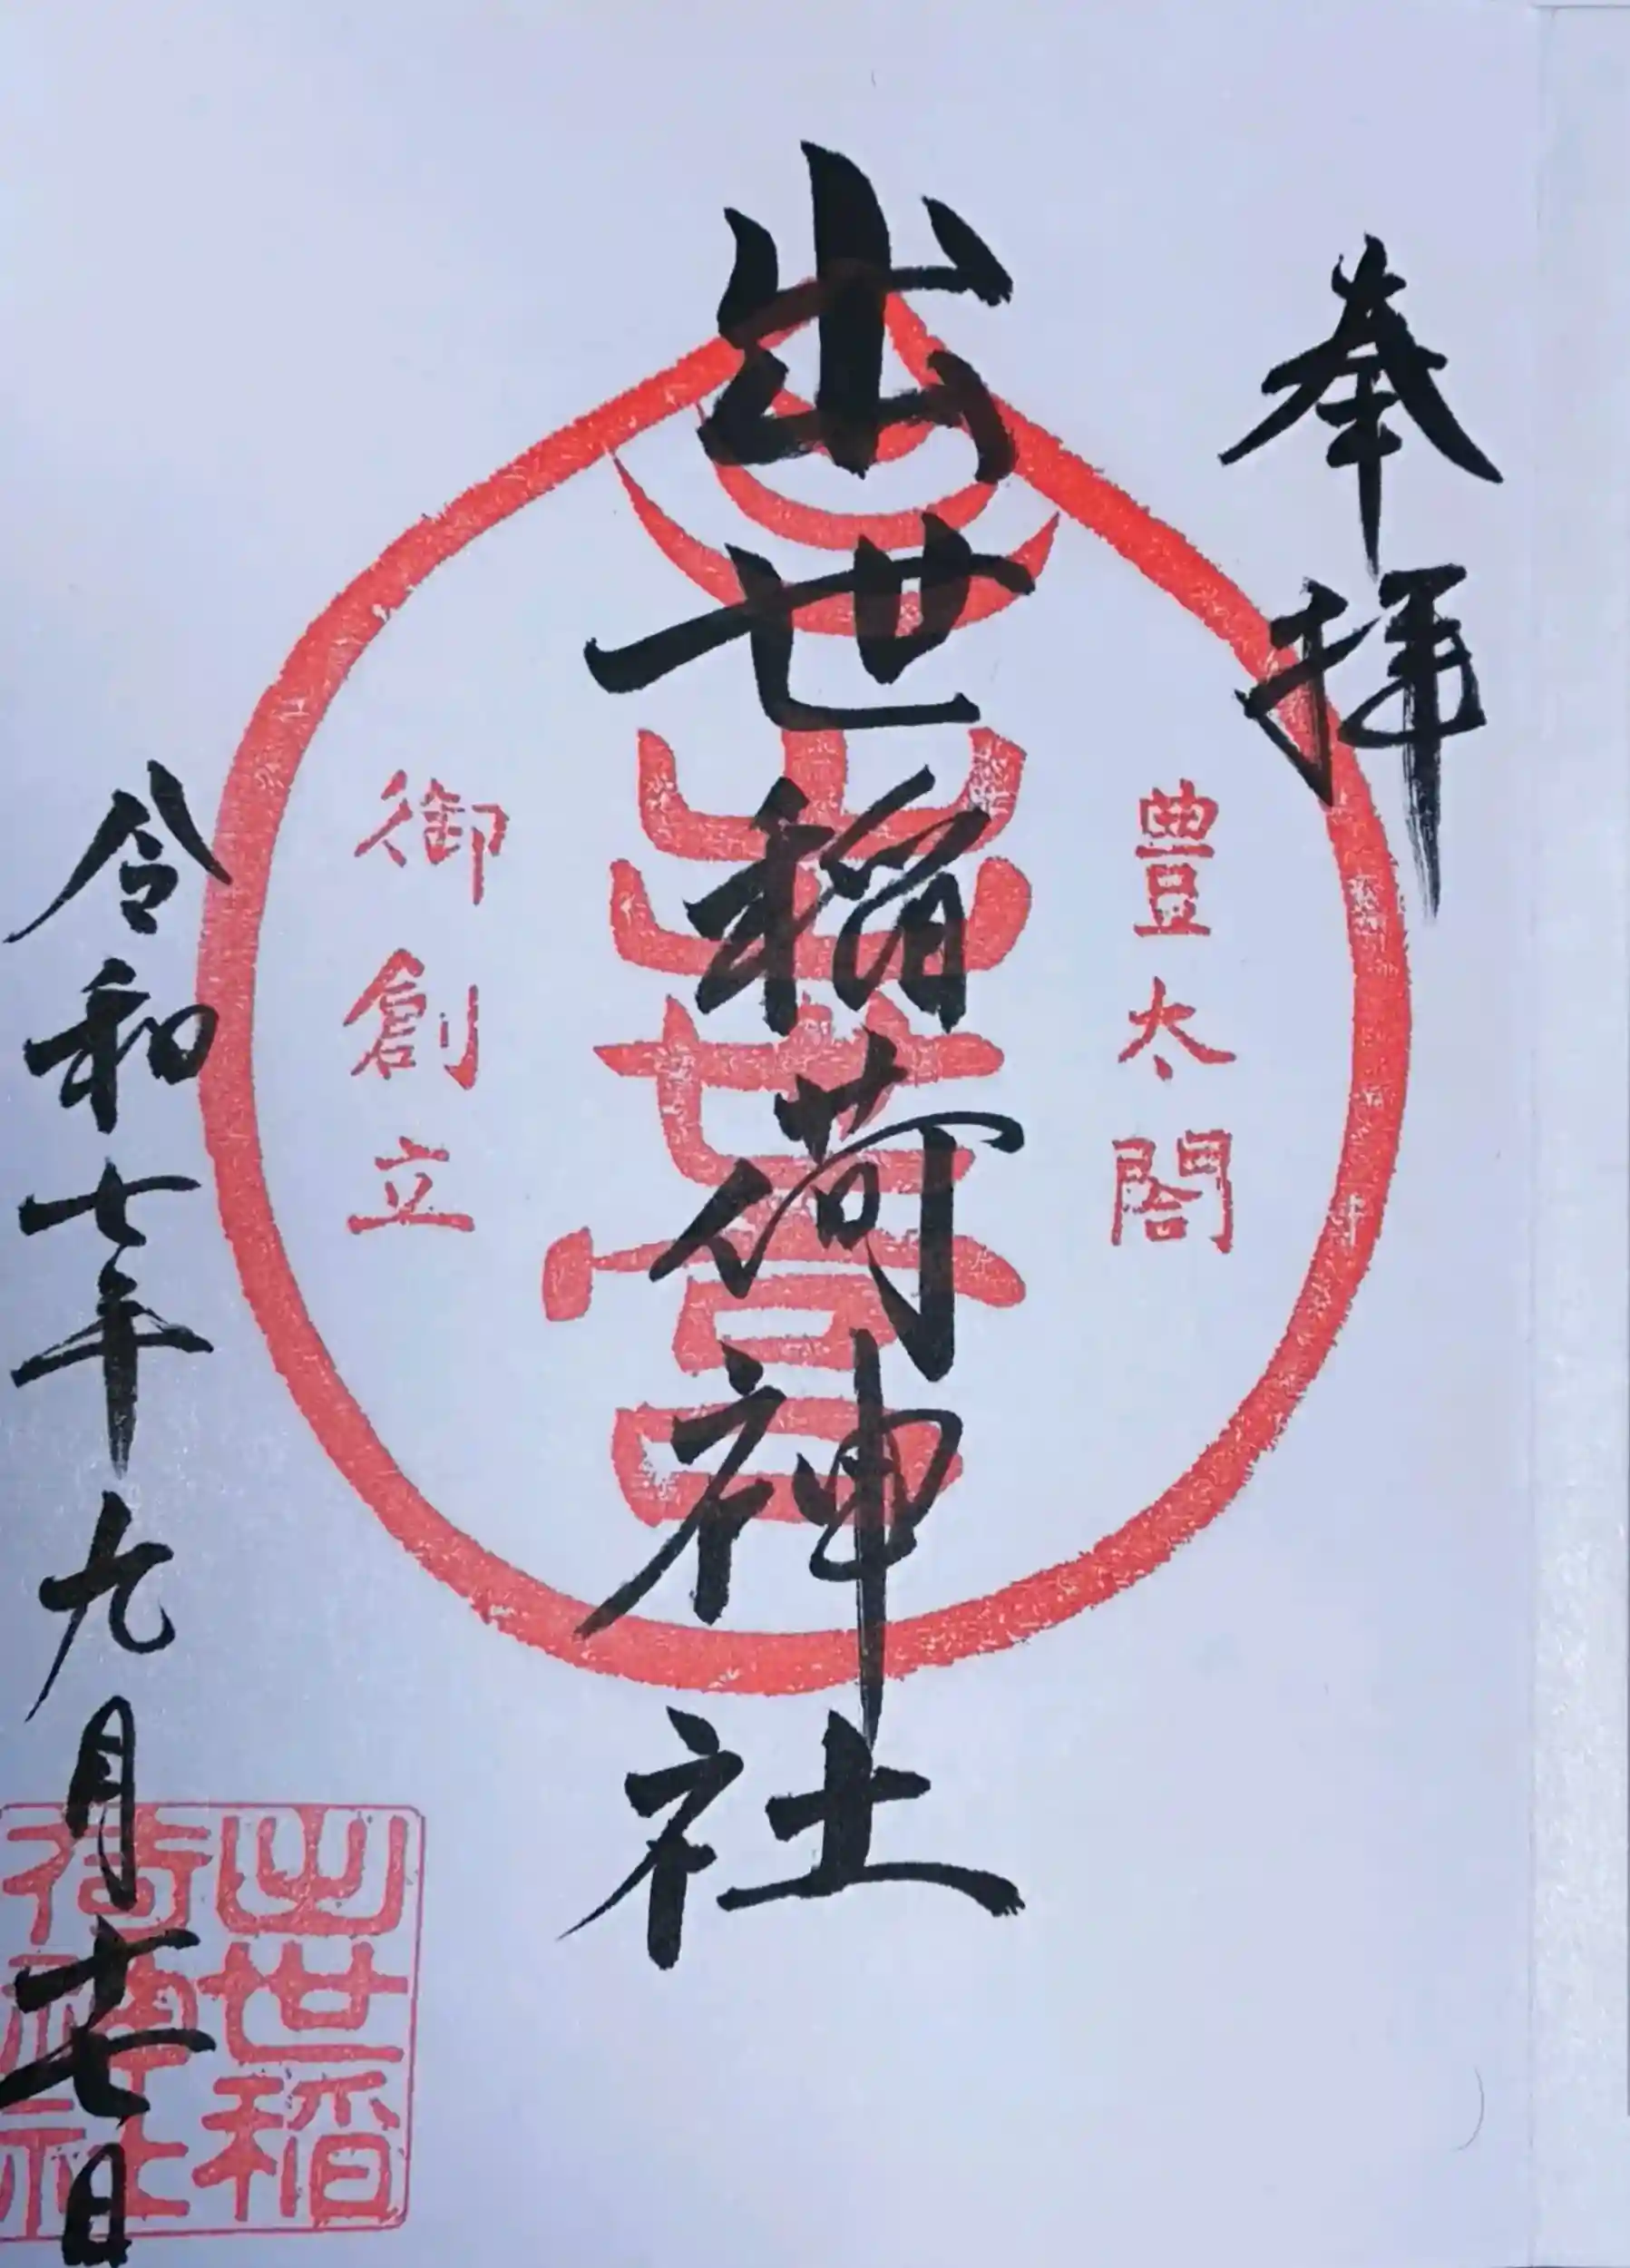 奉拝
豊太閤
出世稲荷神社
出世宮
御創立
令和七年九月十七日
出世稲
荷神社